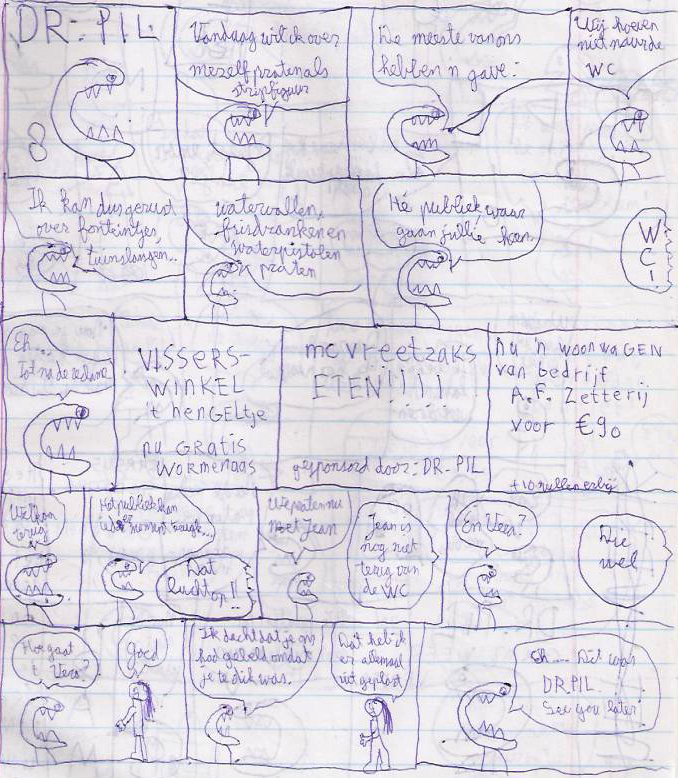 DR. PIL
8
Vandaag wil ik over
mezelf praten als
stripfiguur
De meeste van ons
hebben 'n gave:
Wij hoeven
niet naar de
WC
Ik kan dus gerust
over fonteintjes,
tuinslangen..
watervallen,
frisdranken en
waterpistolen
praten
Hé publiek waar
gaan jullie heen
WC!
Eh...
Tot na de reclame
VISSERS-
WINKEL
't hENGELtje
nu GRATIS
WORMENAAS
mc vreetzaks
ETEN!!!!!
gesponsord door: DR. PIL
nu 'n woonwAGEN
van bedrijf
A.F. Zetterij
voor €90
+10 nullen erbij
Welkom
terug
Het publiek kan
elk moment terugk...
Dat
lucht
op!!
We praten nu
met Jean
Jean is
nog niet
terug van
de WC
En Vera?
Die
wel
Hoe gaat
't Vera?
Goed
Ik dacht dat je m
had gebeld omdat
je te dik was.
Dat heb ik
er allemaal
uit geplast
Eh.... Dit was
DR. PIL.
See you later!